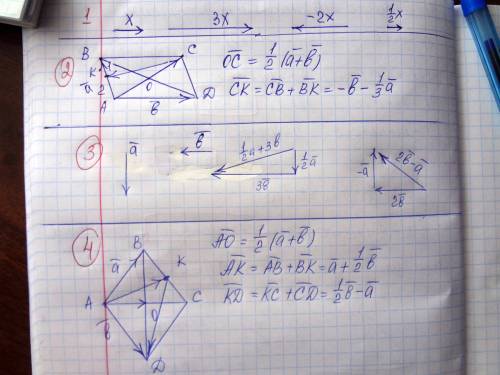 1 x 3x -2x ½x
② B C K 1 a̅ 2 A O b̅ D
O̅C̅ = ½(a̅+b̅)
C̅K̅ = C̅B̅ + B̅K̅ = -b̅ - ⅓a̅
③ a̅ b̅ ½a̅+3b̅ ½a̅ 3b̅ -a̅ 2b̅-a̅ 2b̅
④ B a̅ K A O C b̅ D
A̅O̅ = ½(a̅+b̅)
A̅K̅ = A̅B̅ + B̅K̅ = a̅ + ½b̅
K̅D̅ = K̅C̅ + C̅D̅ = ½b̅ - a̅